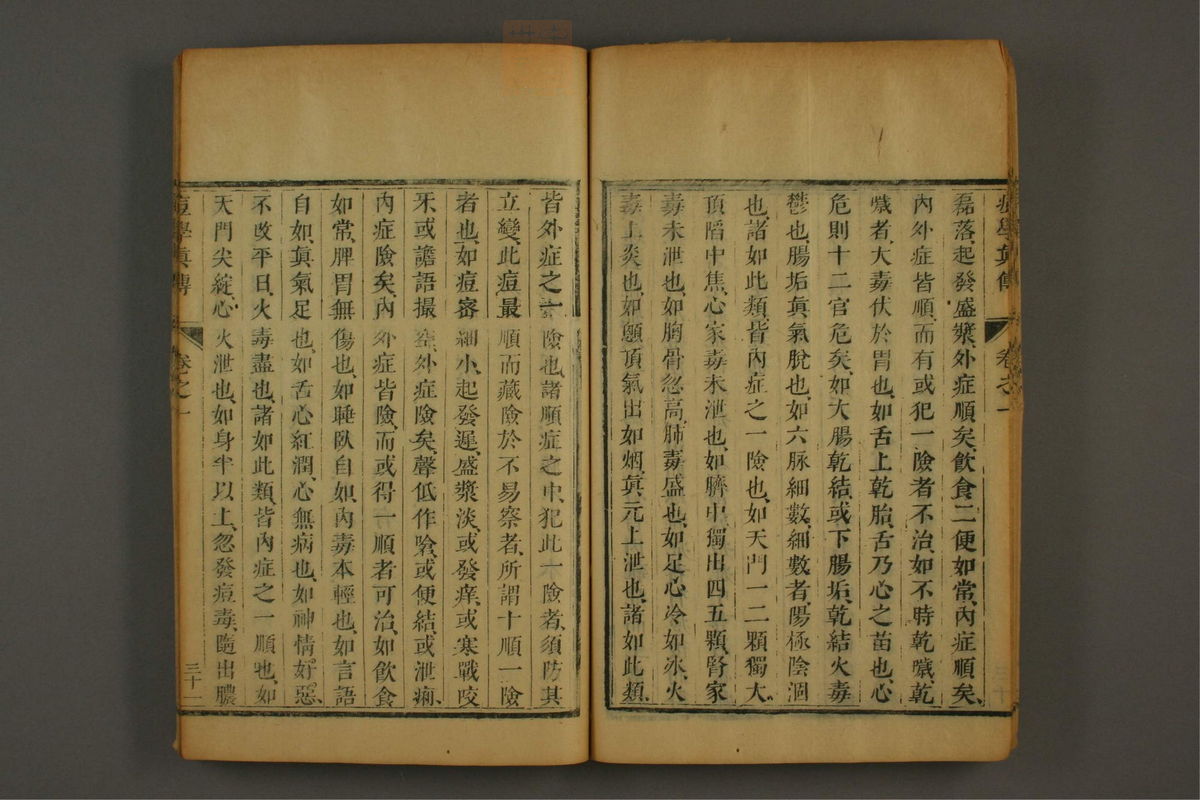 痘學眞傳 卷之一
磊落起發盛漿、外症順矣、飮食二便如常、內症順矣、
內外症皆順、而有或犯一險者不治、如不時乾嘔、乾
嘔者、大毒伏於胃也、如舌上乾胎、舌乃心之苗也、心
危則十二官危矣、如大腸乾結或下腸垢、乾結火毒
鬱也、腸垢眞氣脫也、如六脉細數、細數者陽極陰涸
也、諸如此類、皆內症之一險也、如天門一二顆獨大、
頂陷中焦、心家毒未泄也、如臍中獨出四五顆、腎家
毒未泄也、如胸骨忽高、肺毒盛也、如足心冷如冰、火
毒上炎也、如顖頂氣出如烟、眞元上泄也、諸如此類、
皆外症之一險也、諸順症之中、犯此一險者、須防其
立變、此痘最順而藏險於不易察者、所謂十順一險
者也、如痘密細小、起發遲、盛漿淡、或發痒、或寒戰咬
牙、或譫語撮空、外症險矣、聲低作嗆、或便結、或泄痢、
內症險矣、內外症皆險、而或得一順者可治、如飮食
如常、脾胃無傷也、如睡臥自如、內毒本輕也、如言語
自如、眞氣足也、如舌心紅潤、心無病也、如神情好惡、
不改平日、火毒盡也、諸如此類、皆內症之一順也、如
天門尖綻、心火泄也、如身半以上、忽發痘毒、隨出膿
痘學眞傳 卷之一 三十一